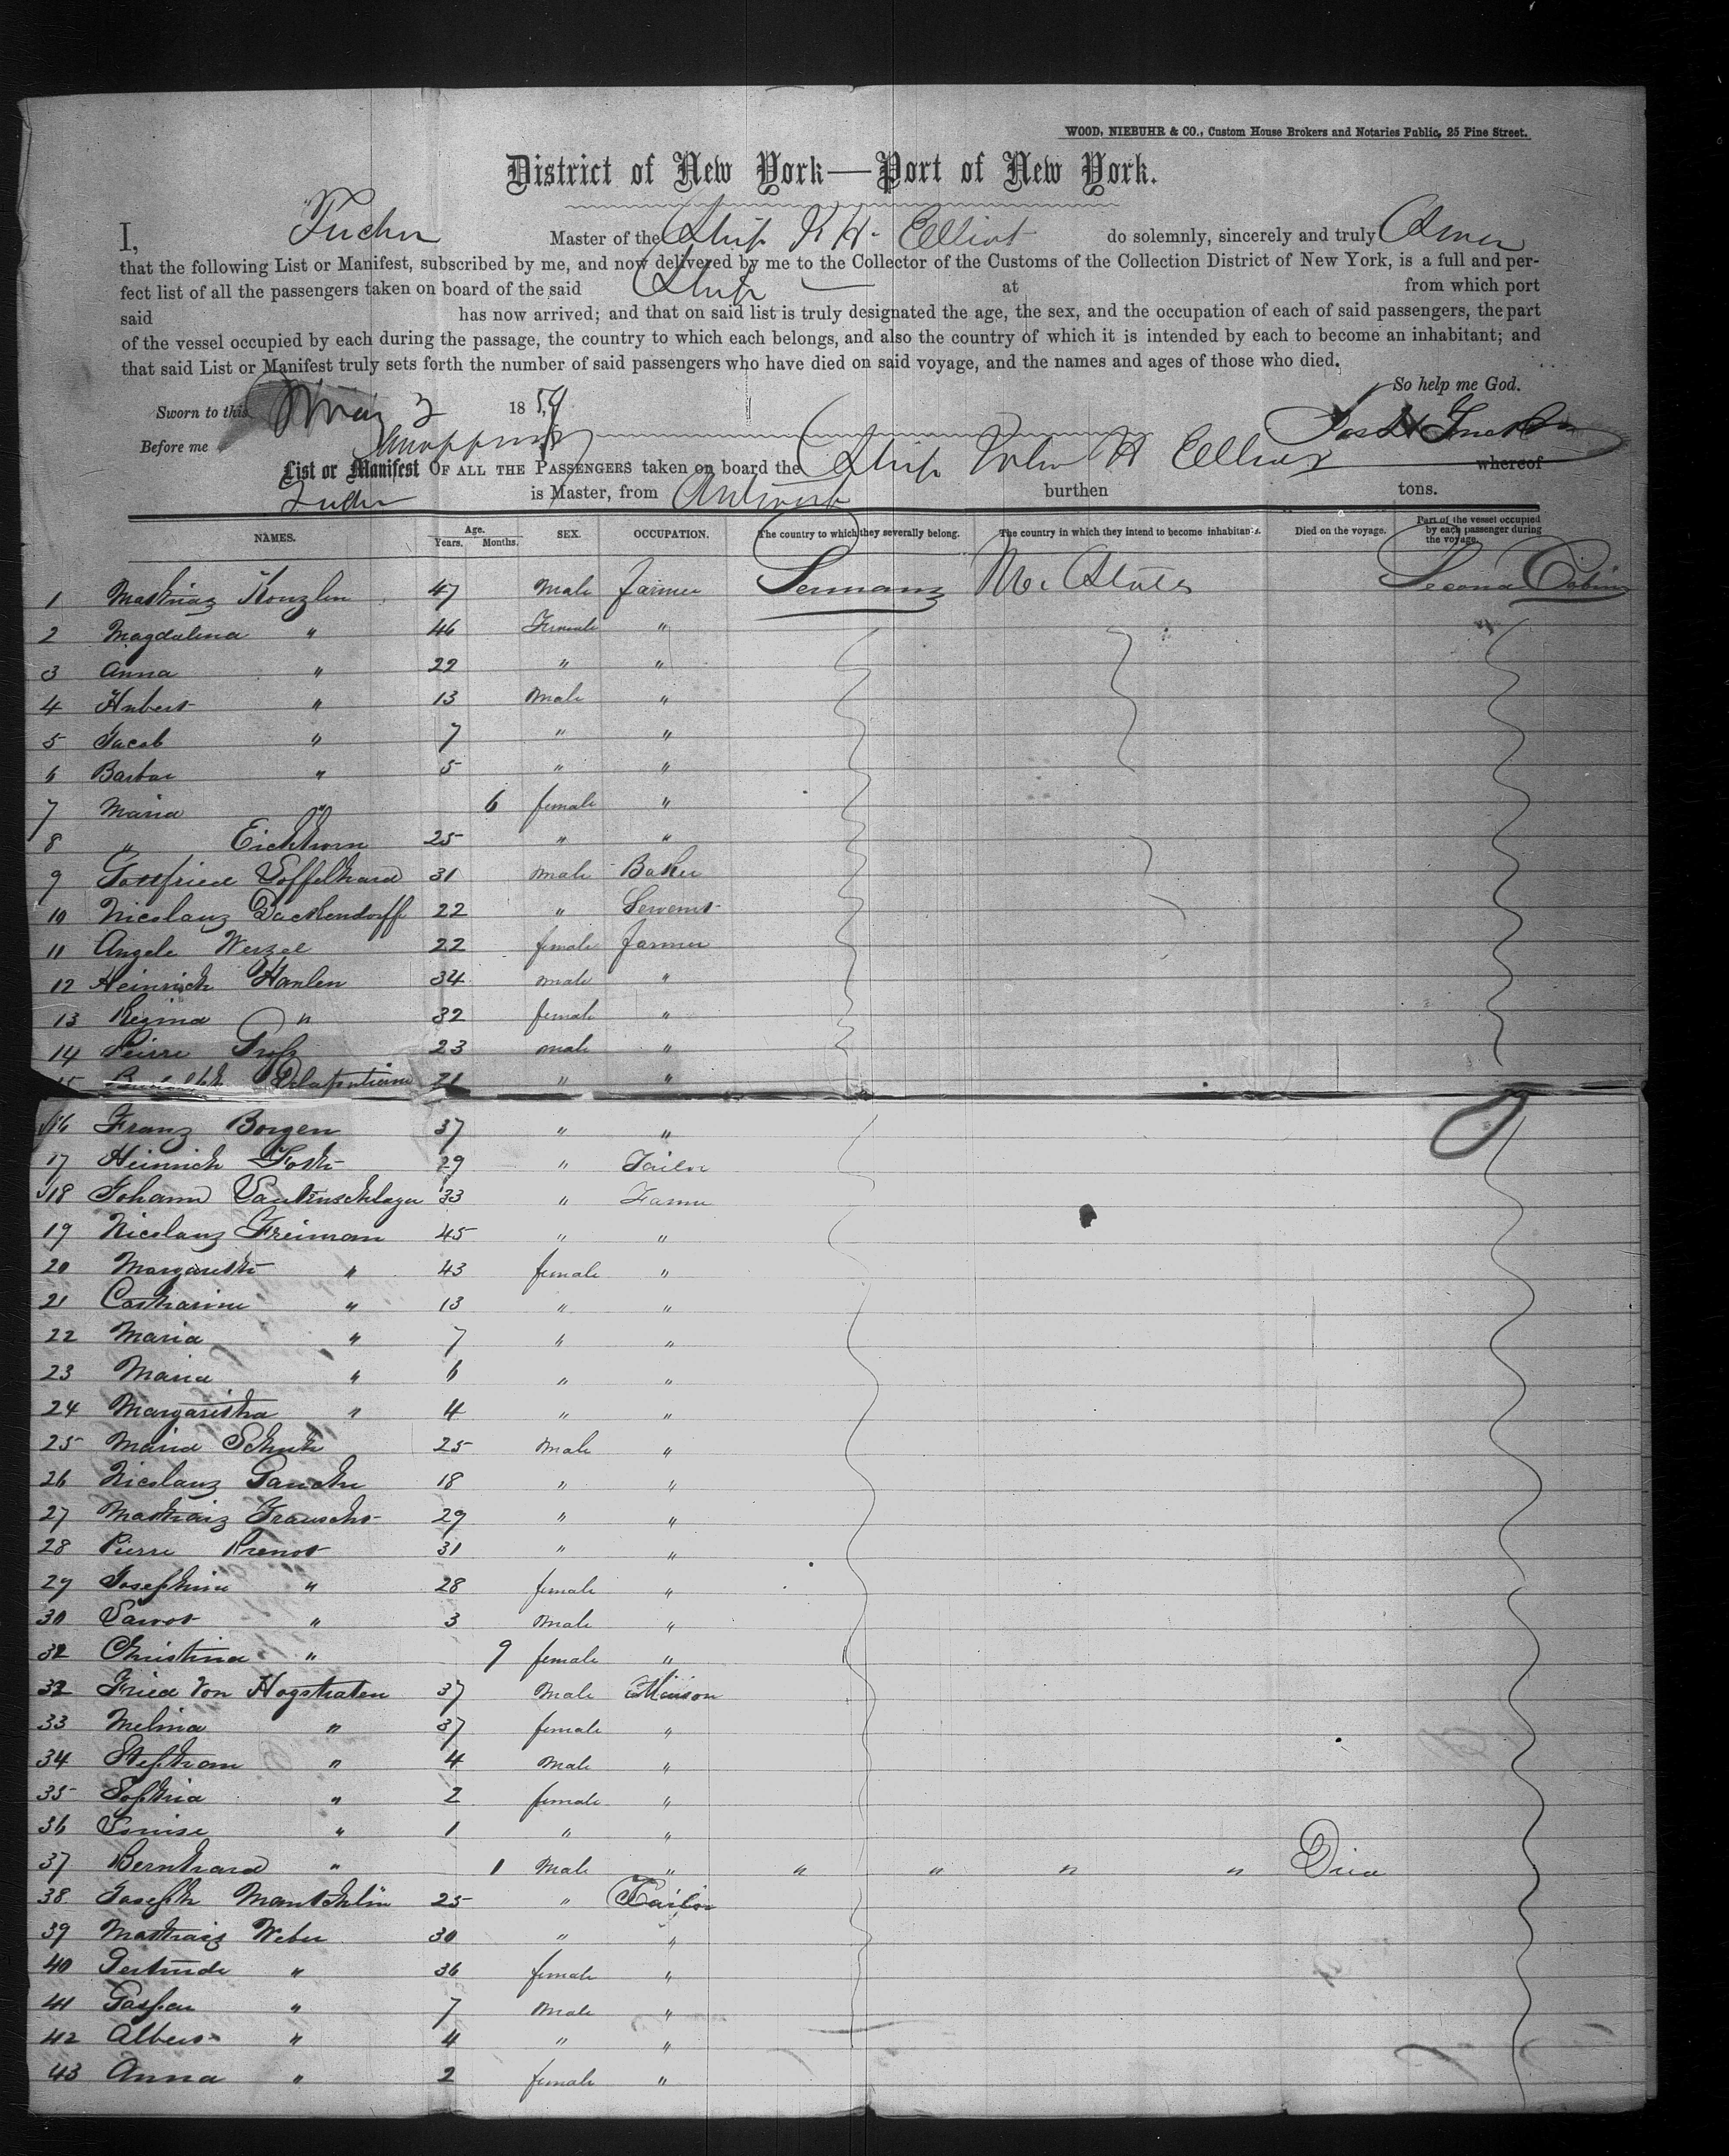 WOOD, NIEBUHR & CO., Custom House Brokers and Notaries Public, 25 Pine Street.
District of New York—Port of New York.
I, Tucker Master of the Ship J. H. Elliot do solemnly, sincerely and truly Swear
that the following List or Manifest, subscribed by me, and now delivered by me to the Collector of the Customs of the Collection District of New York, is a full and per-
fect list of all the passengers taken on board of the said Ship at from which port
said has now arrived; and that on said list is truly designated the age, the sex, and the occupation of each of said passengers, the part
of the vessel occupied by each during the passage, the country to which each belongs, and also the country of which it is intended by each to become an inhabitant; and
that said List or Manifest truly sets forth the number of said passengers who have died on said voyage, and the names and ages of those who died.
So help me God.
Sworn to this May 2 1854
Before me
List or Manifest OF ALL THE PASSENGERS taken on board the Ship John H Elliot whereof
Tucker is Master, from Antwerp burthen tons.
NAMES. Age. Years. Months. SEX. OCCUPATION. The country to which they severally belong. The country in which they intend to become inhabitants. Died on the voyage. Part of the vessel occupied by each passenger during the voyage.
1 Mathias Konzlen 47 Male farmer Germany States Second Cabin
2 Magdalena " 46 Female "
3 Anna " 22 " "
4 Hubert " 13 Male "
5 Jacob " 7 " "
6 Barbar " 5 " "
7 Maria " 6 female "
8 " Eichhorn 25 " "
9 Gottfried Loffelhard 31 male Baker
10 Nicolaus Dackendorff 22 "
11 Angele Wenzel 22 female farmer
12 Heinrich Hanlen 34 male "
13 Regina " 32 female "
14 Peirre Groß 23 male "
15 21 " "
16 Franz Borgen 37 " "
17 Heinrich 29 " Tailor
18 Johann Lautenschlager 33 " Farmer
19 Nicolaus Freiman 45 " "
20 Margareth " 43 female "
21 Catharine " 13 " "
22 Maria " 7 " "
23 Maria " 6 " "
24 Margaretha " 4 " "
25 Maria Schuh 25 male "
26 Nicolaus 18 " "
27 Mathias 29 " "
28 Pierre Prenot 31 " "
29 Josephine " 28 female "
30 " 3 Male "
31 Christina " 9 female "
32 Fried Von Hogstraten 37 Male
33 Melina " 37 female "
34 Stephan " 4 Male "
35 Sophia " 2 female "
36 Louise " 1 " "
37 Bernhard " 1 Male " " " " " Died
38 Joseph Mantchlin 25 " Tailor
39 Mathias Weber 30 " "
40 Gertrude " 36 female "
41 Gasper " 7 Male "
42 Albert " 4 " "
43 Anna " 2 female "